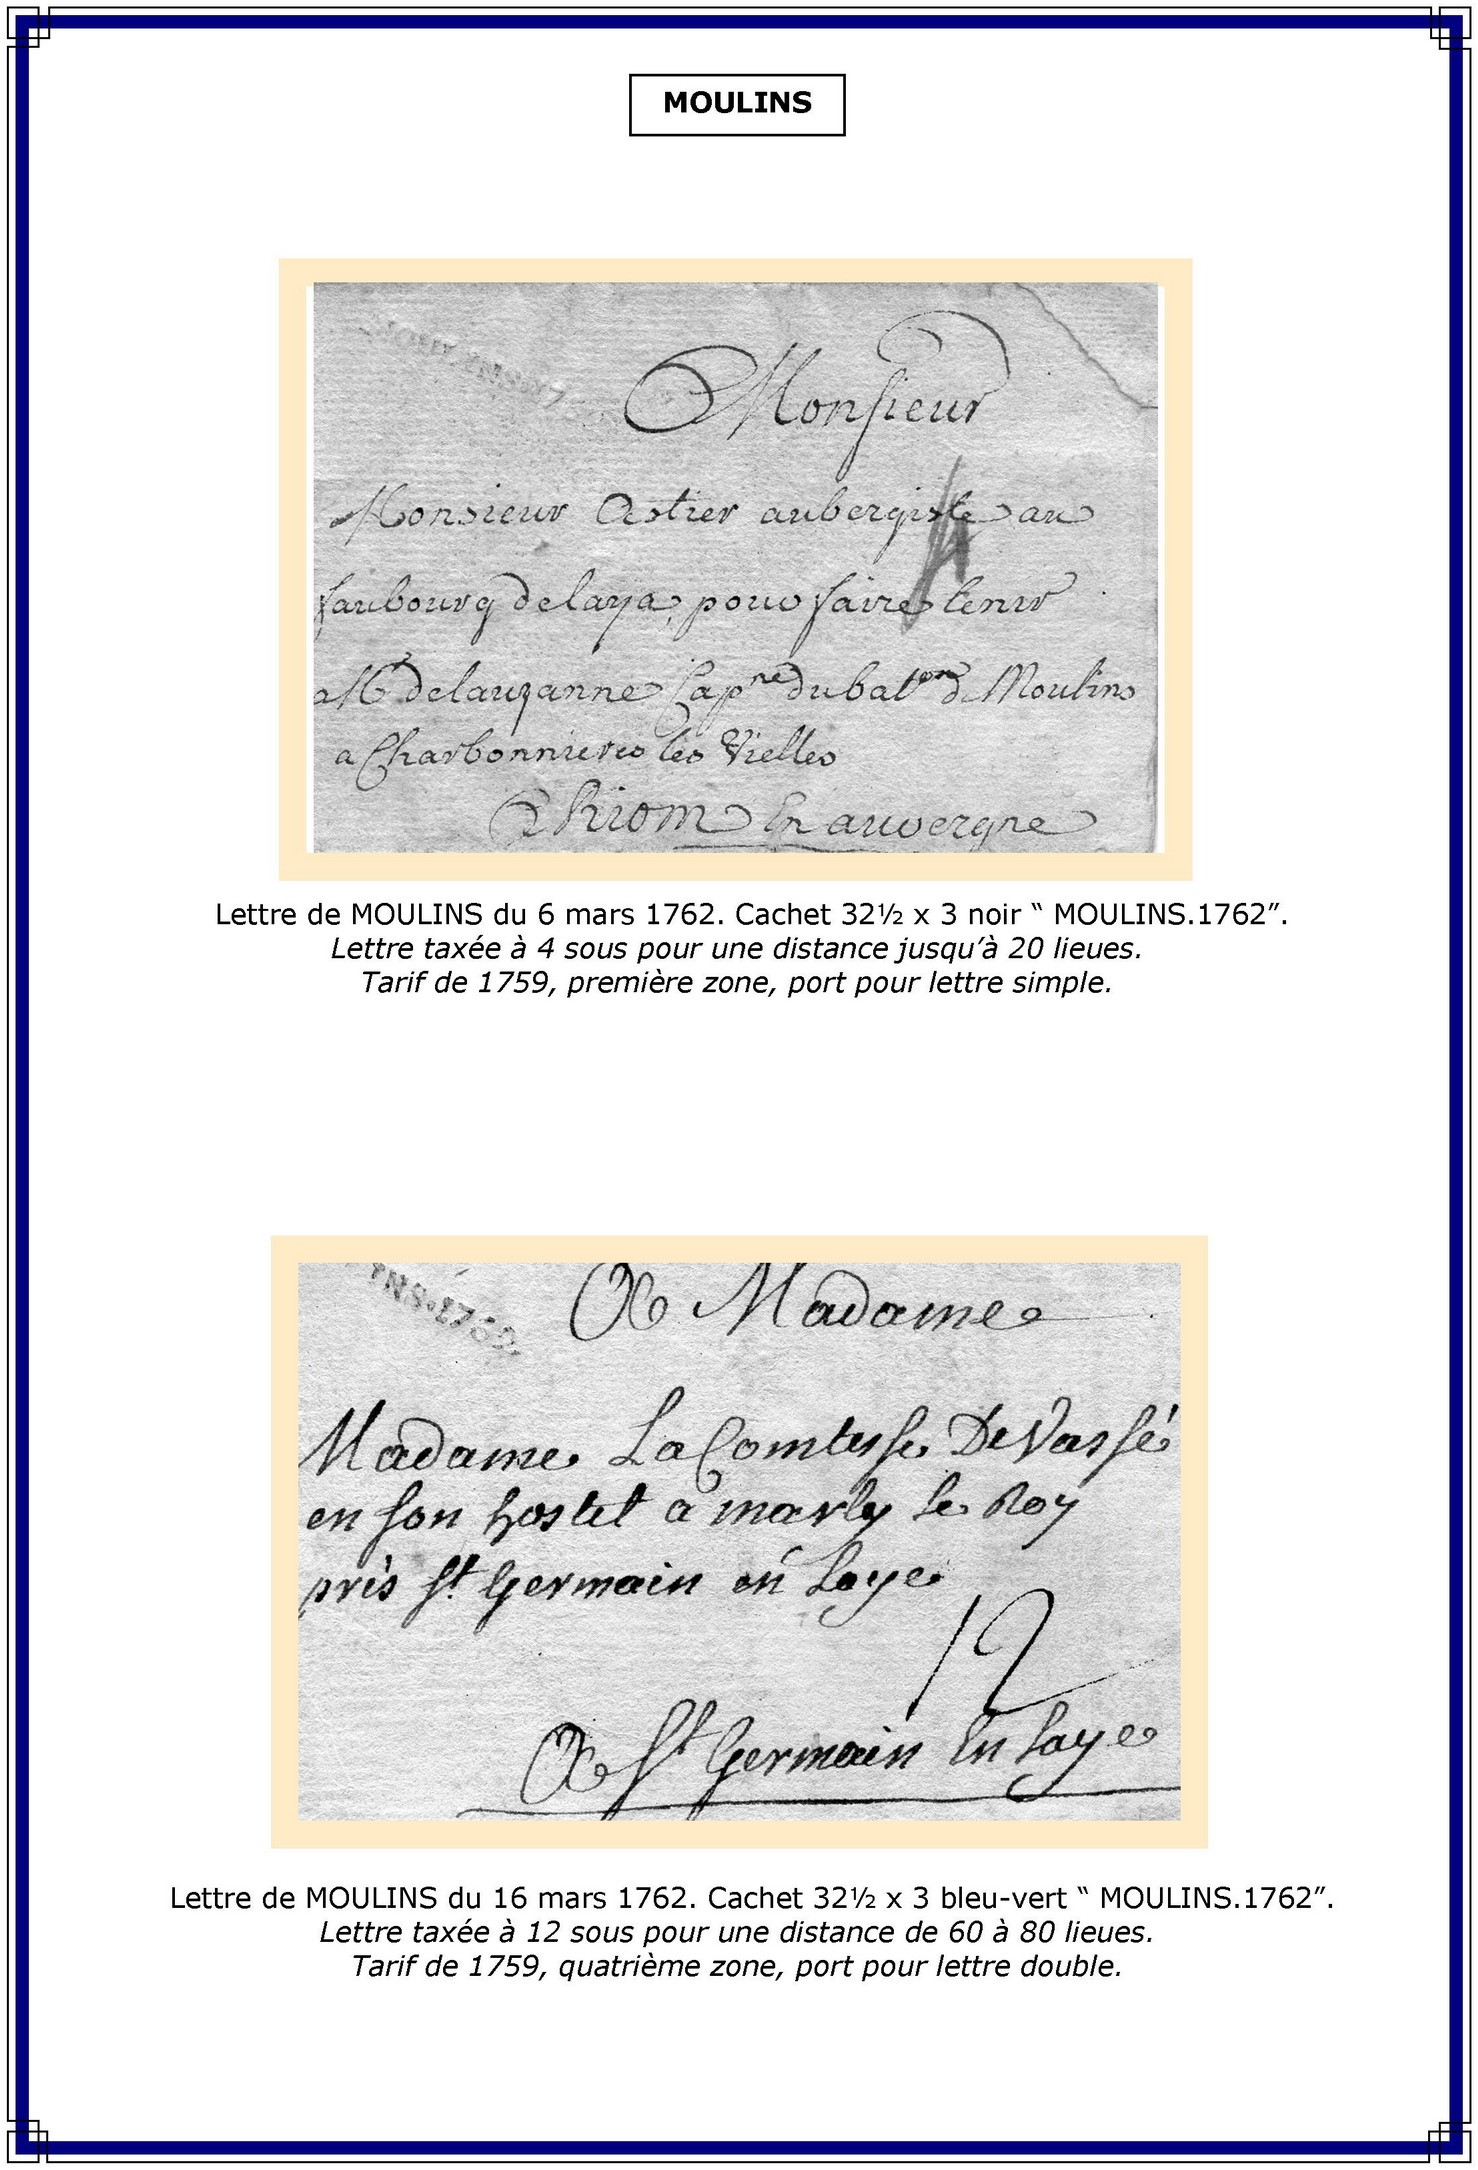 MOULINS
Monsieur
4
Monsieur Astier aubergiste au
faubourg delaya, pour faire tenir
a Mr delauzanne Capne du baton d Moulins
a Charbonnieres les Vielles
A Riom En auvergne
Lettre de MOULINS du 6 mars 1762. Cachet 32½ x 3 noir “ MOULINS.1762”.
Lettre taxée à 4 sous pour une distance jusqu’à 20 lieues.
Tarif de 1759, première zone, port pour lettre simple.
INS.1762.
A Madame
Madame La Comtesse De Vassé
en son hostel a marly le Roy
près St Germain en Laye
12
A St Germain En Laye
Lettre de MOULINS du 16 mars 1762. Cachet 32½ x 3 bleu-vert “ MOULINS.1762”.
Lettre taxée à 12 sous pour une distance de 60 à 80 lieues.
Tarif de 1759, quatrième zone, port pour lettre double.